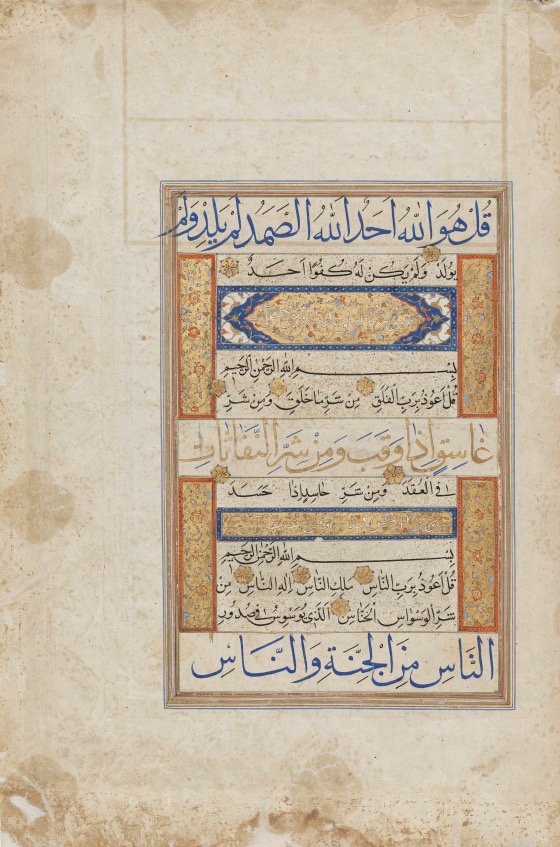 قُلْ هُوَ اللهُ اَحَدٌ اَللهُ الصَّمَدُ لَمْ يَلِدْ وَلَمْ
يُولَدْ وَلَمْ يَكُنْ لَهُ كُفُوًا اَحَدٌ
بِسْمِ اللهِ الرَّحْمٰنِ الرَّحِيمِ
قُلْ اَعُوذُ بِرَبِّ الْفَلَقِ مِنْ شَرِّ مَا خَلَقَ وَمِنْ شَرِّ
غَاسِقٍ اِذَا وَقَبَ وَمِنْ شَرِّ النَّفَّاثَاتِ
فِي الْعُقَدِ وَمِنْ شَرِّ حَاسِدٍ اِذَا حَسَدَ
بِسْمِ اللهِ الرَّحْمٰنِ الرَّحِيمِ
قُلْ اَعُوذُ بِرَبِّ النَّاسِ مَلِكِ النَّاسِ اِلٰهِ النَّاسِ مِنْ
شَرِّ الْوَسْوَاسِ الْخَنَّاسِ الَّذِي يُوَسْوِسُ فِي صُدُورِ
النَّاسِ مِنَ الْجِنَّةِ وَالنَّاسِ